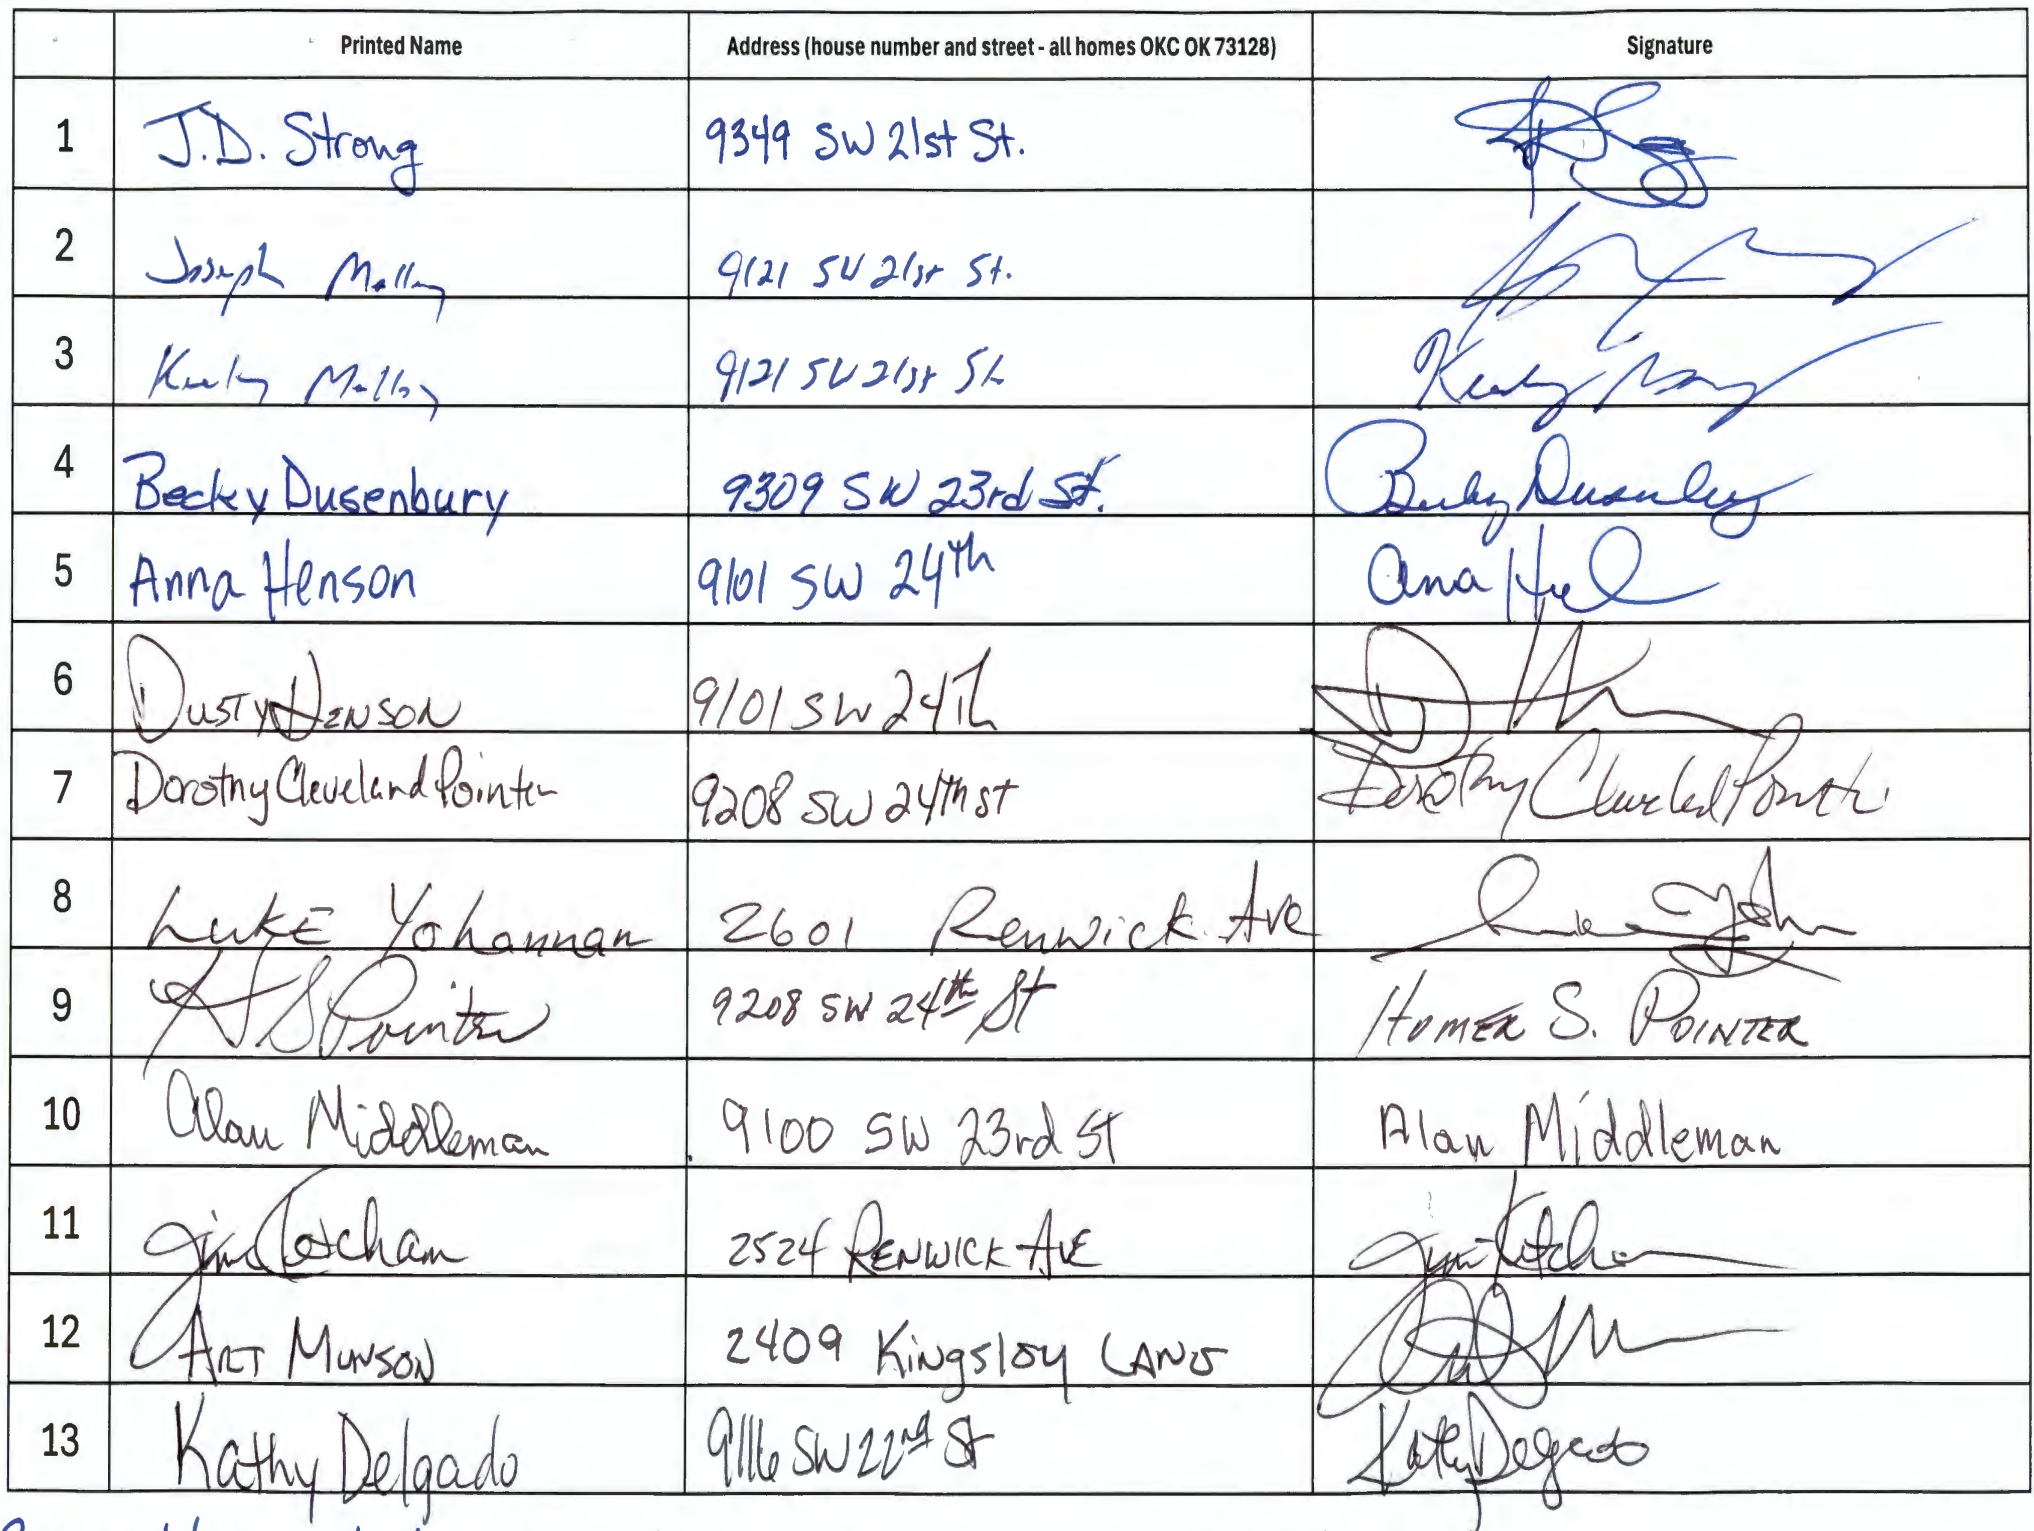 Printed Name Address (house number and street - all homes OKC OK 73128) Signature
1 J.D. Strong 9349 SW 21st St.
2 Joseph Molloy 9121 SW 21st St.
3 Keely Molloy 9121 SW 21st St
4 Becky Dusenbury 9309 SW 23rd St. Becky Dusenbury
5 Anna Henson 9101 SW 24th Ana
6 Dusty Henson 9101 SW 24Th
7 Dorothy Cleveland Pointer 9208 SW 24th st Dorothy Cleveland Pointer
8 LukE Yohannan 2601 Renwick Ave
9 H S Pointer 9208 SW 24th St HOMER S. POINTER
10 Alan Middleman 9100 SW 23rd St Alan Middleman
11 Jim Ketcham 2524 RENWICK AVE Jim Ketcham
12 ART MUNSON 2409 Kingsley LANE
13 Kathy Delgado 9116 SW 22nd St Kathy Delgado